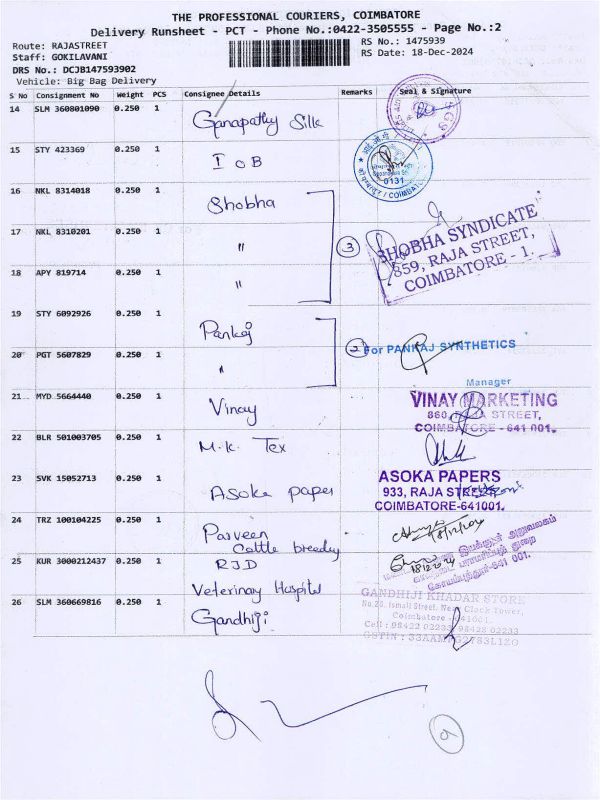 THE PROFESSIONAL COURIERS, COIMBATORE
Delivery Runsheet - PCT - Phone No.:0422-3505555 - Page No.:2
Route: RAJASTREET
RS No.: 1475939
Staff: GOKILAVANI
RS Date: 18-Dec-2024
DRS No.: DCJB147593902
Vehicle: Big Bag Delivery
S No Consignment No Weight PCS Consignee Details Remarks Seal & Signature
14 SLM 360801090 0.250 1 Ganapathy Silk
15 STY 423369 0.250 1 I O B
0131
COIMBATORE
16 NKL 8314018 0.250 1 Shobha
17 NKL 8310201 0.250 1 "
3
SHOBHA SYNDICATE
859, RAJA STREET,
COIMBATORE - 1.
18 APY 819714 0.250 1 "
19 STY 6092926 0.250 1 Pankaj
20 PGT 5607829 0.250 1 "
2
For PANKAJ SYNTHETICS
Manager
21 MYD 5664440 0.250 1 Vinay
VINAY MARKETING
860, RAJA STREET,
COIMBATORE - 641 001.
22 BLR 501003705 0.250 1 M.K. Tex
23 SVK 15052713 0.250 1 Asoka paper
ASOKA PAPERS
933, RAJA STREET
COIMBATORE-641001.
24 TRZ 100104225 0.250 1 Parveen
Cattle breeding
18/12/2024
25 KUR 3000212437 0.250 1 RJD
Veterinay Hospital
18/12/2024
26 SLM 360669816 0.250 1 Gandhiji
GANDHIJI KHADAR STORE
No.26, Ismail Street, Near Clock Tower,
Coimbatore - 641001.
Cell : 98422 02233, 98428 02233
9